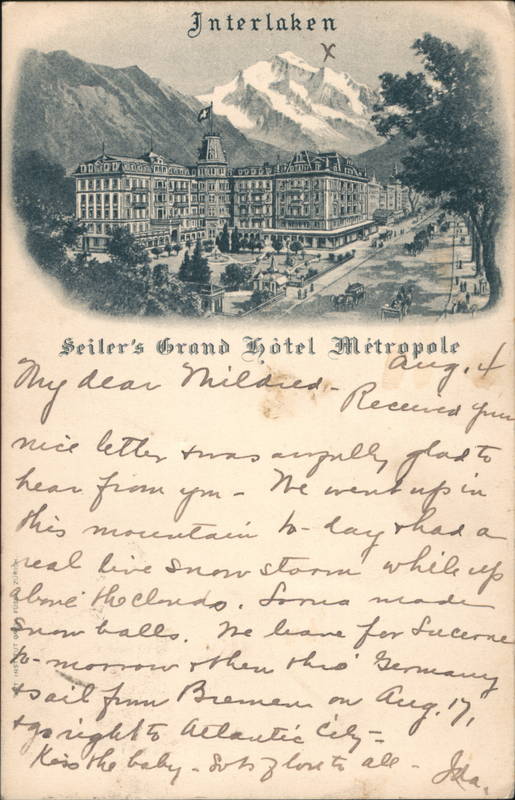 Interlaken
x
Seiler's Grand Hôtel Métropole
Aug. 4
My dear Mildred -
Received your
nice letter & was awfully glad to
hear from you - We went up in
this mountain to-day & had a
real live snow storm while up
above the clouds. Lorna made
snow balls. We leave for Lucerne
to-morrow & then thro' Germany
& sail from Bremen on Aug. 17,
& go right to Atlantic City -
Kiss the baby - Lots of love to all -
Ida.